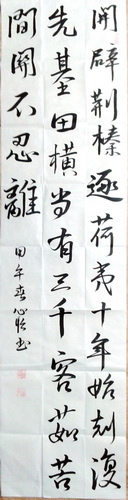 開辟荆榛逐荷夷十年始尅復
先基田横尚有三千客茹苦
間関不忍離
甲午春心怡书